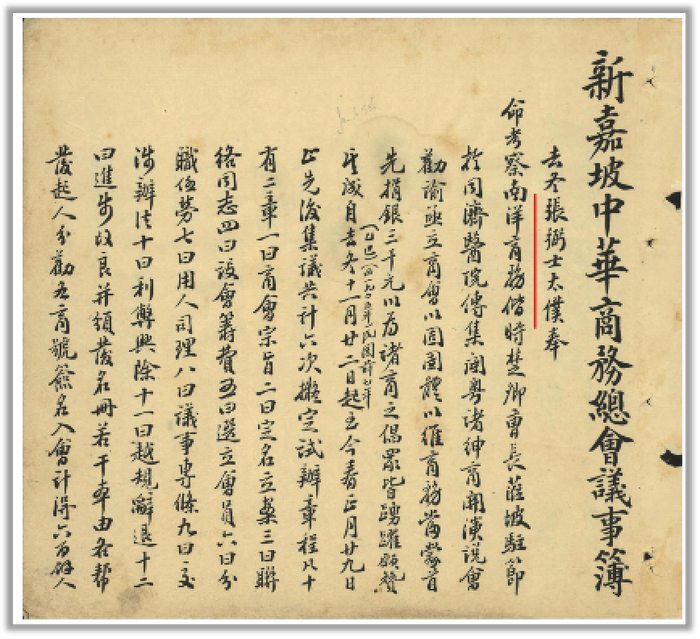 新嘉坡中華商務總會議事簿
去冬張弼士太僕奉
命考察南洋商務偕時楚卿會長蒞坡駐節
於同濟醫院傳集閩粵諸紳商開演說會
勸諭亟立商會以固團體以維商務當蒙首
先捐銀三千元以為諸商之倡眾皆踴躍願贊
其成自去冬十一月廿二日起至今春正月廿九日
(乙巳 公一九〇五年 民國前七年
止先後集議共計六次擬定試辦章程凡十
有二章一曰商會宗旨二曰定名立案三曰聯
絡同志四曰設會籌費五曰選立會員六曰分
職任勞七曰用人司理八曰議事專條九曰交
涉辦法十曰利弊興除十一曰越規辭退十二
曰進步改良并須發名冊若干本由各幫
發起人分勸各商號簽名入會計得六百餘人